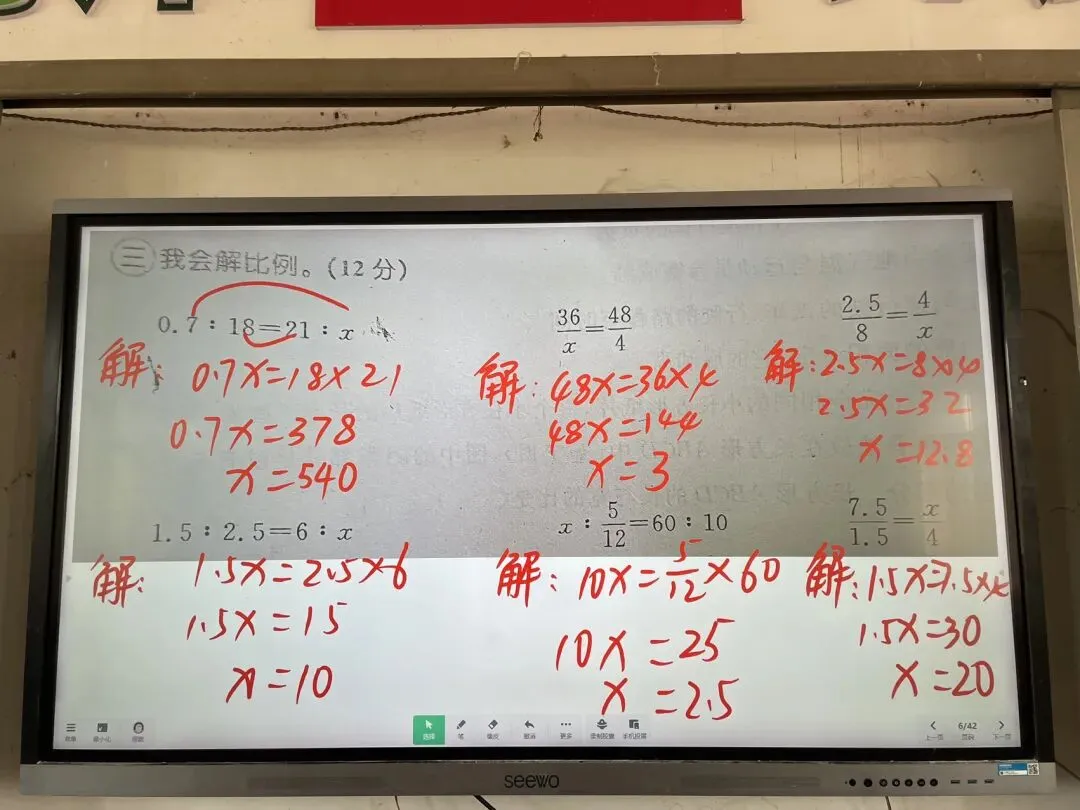 三 我会解比例。(12分)
0.7∶18=21∶x
36/x=48/4
2.5/8=4/x
解: 0.7x=18×21
解: 48x=36×4
解: 2.5x=8×4
0.7x=378
48x=144
2.5x=32
x=540
x=3
x=12.8
1.5∶2.5=6∶x
x∶5/12=60∶10
7.5/1.5=x/4
解: 1.5x=2.5×6
解: 10x=5/12×60
解: 1.5x=7.5×4
1.5x=15
10x=25
1.5x=30
x=10
x=2.5
x=20
选择 笔 橡皮 撤销 更多
6/42
上一页 页码 下一页
seewo